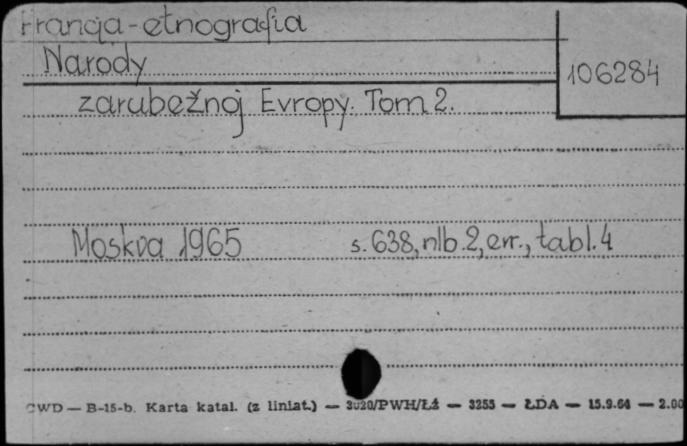 Francja - etnografia
Narody
106284
zarubežnoj Evropy. Tom 2.
Moskva 1965 s. 638, nlb. 2, err., tabl. 4
CWD — B-15-b. Karta katal. (z liniat.) — 3020/PWH/Łź — 3255 — ŁDA — 15.9.64 — 2.00